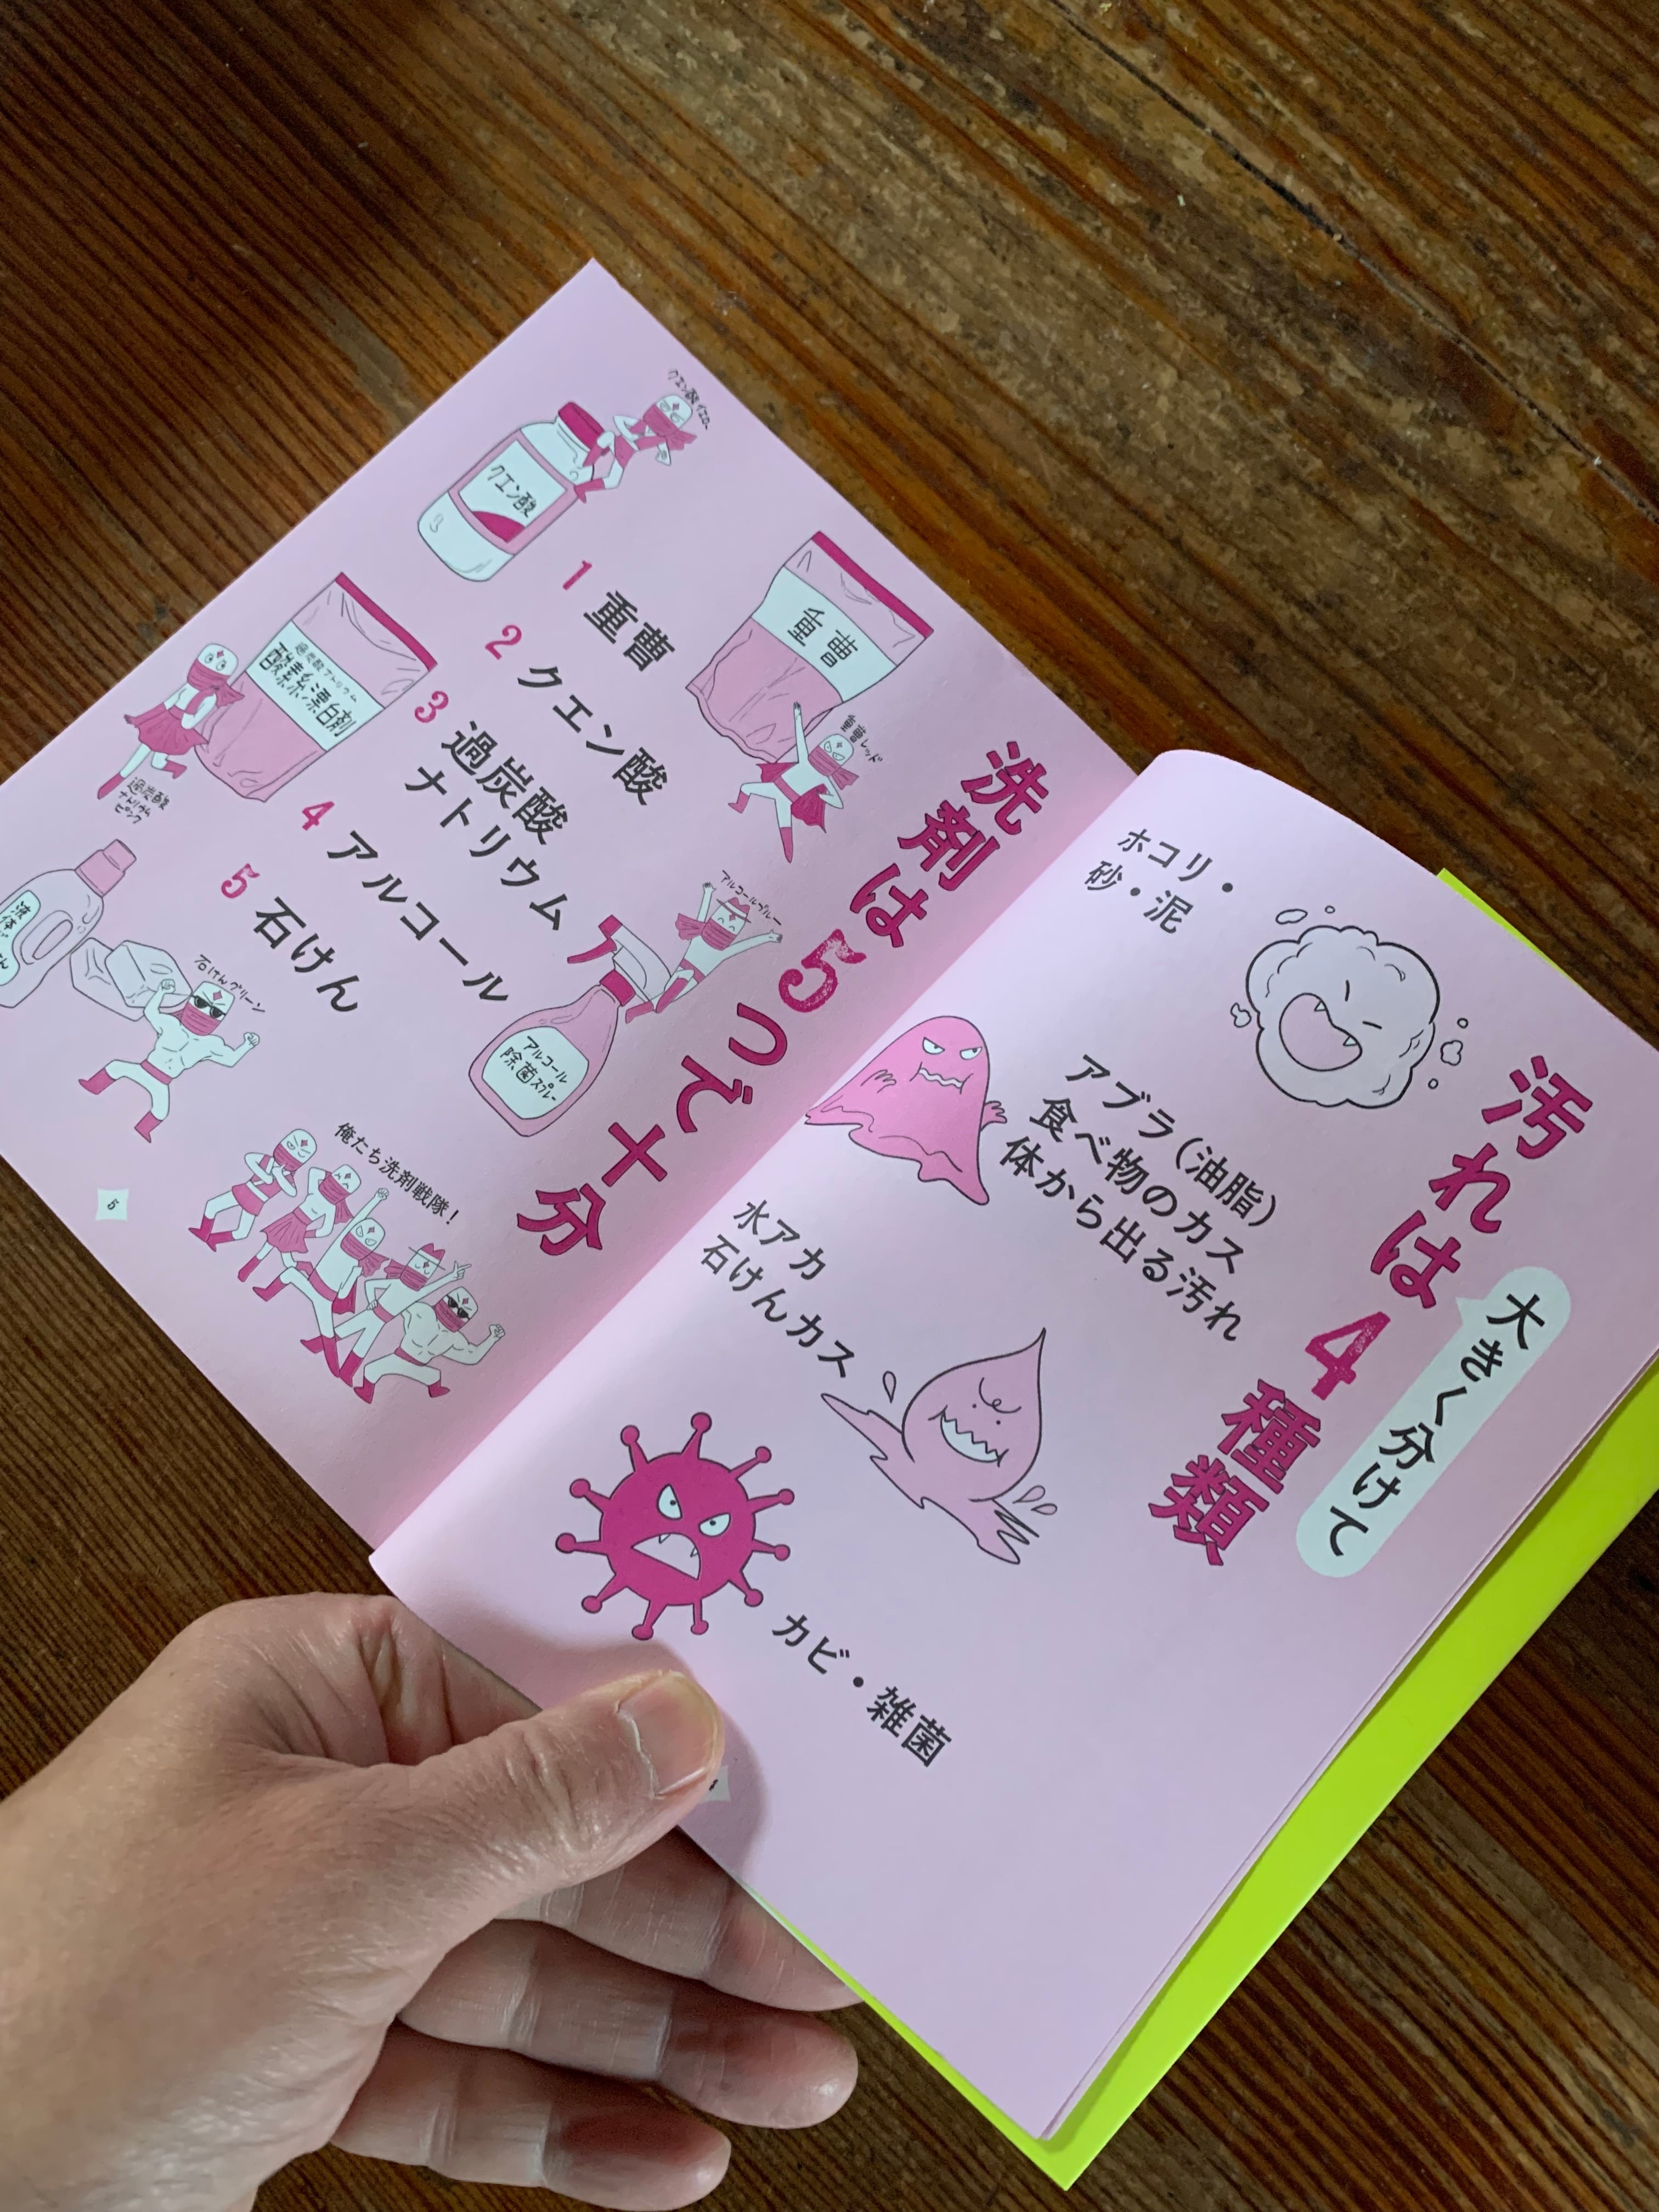 大きく分けて
汚れは4種類
ホコリ・
砂・泥
アブラ（油脂）
食べ物のカス
体から出る汚れ
水アカ
石けんカス
カビ・雑菌
洗剤は5つで十分
1 重曹
2 クエン酸
3 過炭酸
ナトリウム
4 アルコール
5 石けん
重曹
重曹レッド
クエン酸
クエン酸イエロー
過炭酸ナトリウム
酸素系漂白剤
過炭酸
ナトリウム
ピンク
アルコールブルー
アルコール
除菌スプレー
石けんグリーン
俺たち洗剤戦隊！
5